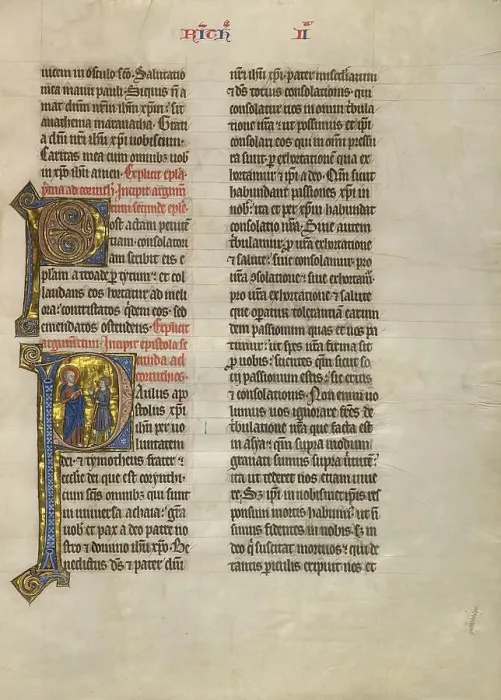 RICH II
uicem in osculo sco. Salutatio
mea manu pauli. Siquis n a
mat dnm nrm ihm xpm: sit
anathema maranatha. Grati
a dni nri ihu xpi uobiscum.
Caritas mea cum omnibz uob
in xpo ihu amen. Explicit epla
prima ad corinth. Incipit argum
tum secunde eple.
Post actam penitē
tiam consolator
iam scribit eis e
plsam a troade p tytum: et col
laudans eos hortatur ad meli
ora: contristatos qdem eos. sed
emendatos ostendens. Explicit
argumentum. Incipit epistola se
cunda ad
corinthios.
Paulus apo
stolus xpi
ihu per uo
luntatem
dei. et tymotheus frater:
ecclie dei que est corynthi.
cum scis omnibz qui sunt
in uniuersa achaia: gra
uob et pax a deo patre no
stro et domino ihu xpo. Be
nedictus ds et pater dni
nri ihu xpi. pater misericordiarum
et ds totius consolationis. qui
consolatur nos in omni tribula
tione nra: ut possimus et ipi
consolari eos qui in omi pressu
ra sunt. p exhortatione qua ex
hortamur et ipi a deo. Qm sicut
habundant passiones xpi in
nob: ita et per xpm habundat
consolatio nra. Siue autem
tribulamur p ura exhortatione
et salute: siue consolamur pro
ura 9solatione: siue exhortam.
pro ura exhortatione et salute
que operatur tolerantiam earum
dem passionum quas et nos pa
timur: ut spes nra firma sit
p uobis: scientes qm sicut so
cii passionum estis: sic eritis
et consolationis. Non enim uo
lumus uos ignorare fres de
tribulatione nra que facta est
in asya: qm supra modum
grauati sumus supra uirtute:
ita ut tederet nos etiam uiue
re. Sz ipi in nobismetipis res
ponsum mortis habuim: ut n
simus fidentes in nobis. sz in
deo q suscitat mortuos: qui de
tantis piculis eripuit nos et